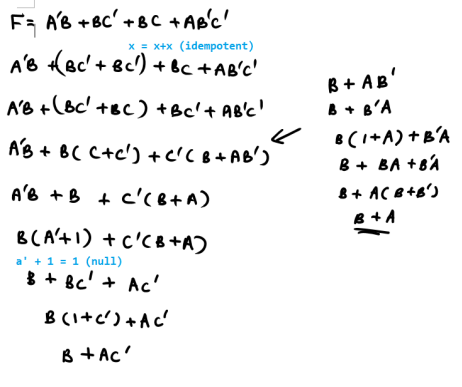 F = A'B + BC' + BC + AB'C'
x = x+x (idempotent)
A'B + (BC' + BC') + BC + AB'C'
A'B + (BC' + BC) + BC' + AB'C'
A'B + B(C+C') + C'(B+AB')
A'B + B + C'(B+A)
B(A'+1) + C'(B+A)
a' + 1 = 1 (null)
B + BC' + AC'
B(1+C') + AC'
B + AC'
B + AB'
B + B'A
B(1+A) + B'A
B + BA + B'A
B + A(B+B')
B + A